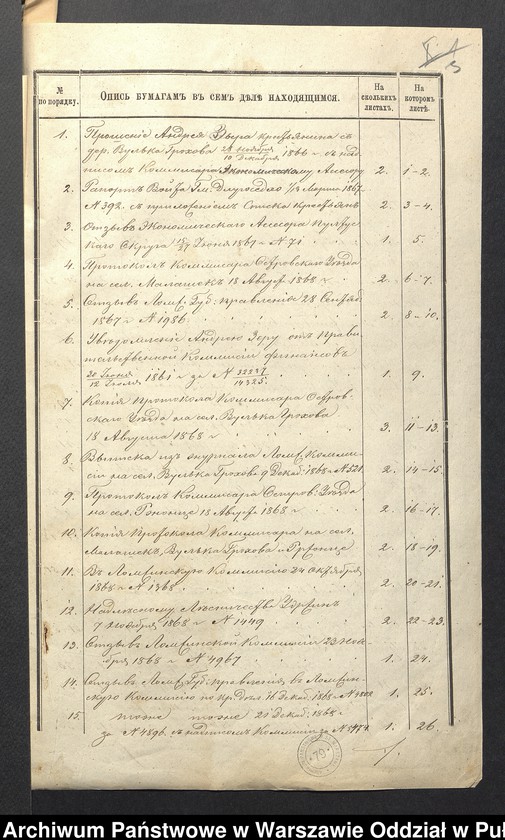 №
по порядку.
Опись бумагамъ въ семъ дѣлѣ находящимся.
На
сколькихъ
листахъ.
На
которомъ
листѣ.
1. Прошеніе Андрея крестьянина съ
дер. Вулька Грохова 28 Ноября 10 Декабря 1866 г. съ над
писомъ Коммисара Экономическому Асесору 2. 1-2.
2. Рапортъ Войта Гм. Длугоседло Марта 1867
N 392. съ приложеніемъ Списка Крестьянъ 2. 3-4.
3. Отзывъ Экономическаго Асесора Пултус
каго Округа 15/27 Іюня 1867 г. N 71 1. 5.
4. Протоколъ Коммисара Островскаго Уѣзда
на сел. Малашекъ 18 Август 1868 г 2. 6-7.
5. Отзывъ Ломж: Губ: правленія 28
1867 г. N 1986 2. 8-10.
6. Уводомленіе Андрею Зеру отъ Прави
тельственной Коммисіи финансовъ
30 Іюня 12 Іюля 1861 г за N 32237 14325. 1. 9.
7. Копія Протокола Коммисара Остров-
скаго Уѣзда на сел. Вулька Грохова
18 Августа 1868 г 3. 11-13.
8. Выписка изъ журнала Ломж. Коммис
сіи на сел. Вулька Грохова 9 Декаб: 1868 г N 521 2. 14-15.
9. Протоколъ Коммисара Остров: Уѣзда
на сел. 18 Август 1868 г 2. 16-17.
10. Копія Протокола Коммисара на сел.
Малашек, Вулька Грохова и 2. 18-19.
11. Въ Ломжинскую Коммисію 24 Октября
1868 г N 1368 2. 20-21.
12. Надлѣсному Лѣсничества
7 Ноября 1868 г N 1449 2. 22-23.
13. Отзывъ Ломжинской Коммисіи 23 Ноя-
бря 1868 г N 4967 1. 24.
14. Отзывъ Ломж: Губ: правленія въ Ломжин-
скую Коммисію по кр. дѣл. Декаб. 1868 г N 1. 25.
15. тоже тоже Декаб: 1868 г
за N 4896. съ надписомъ Коммисіи за N 1. 26.
79
Archiwum Państwowe w Warszawie Oddział w Puł